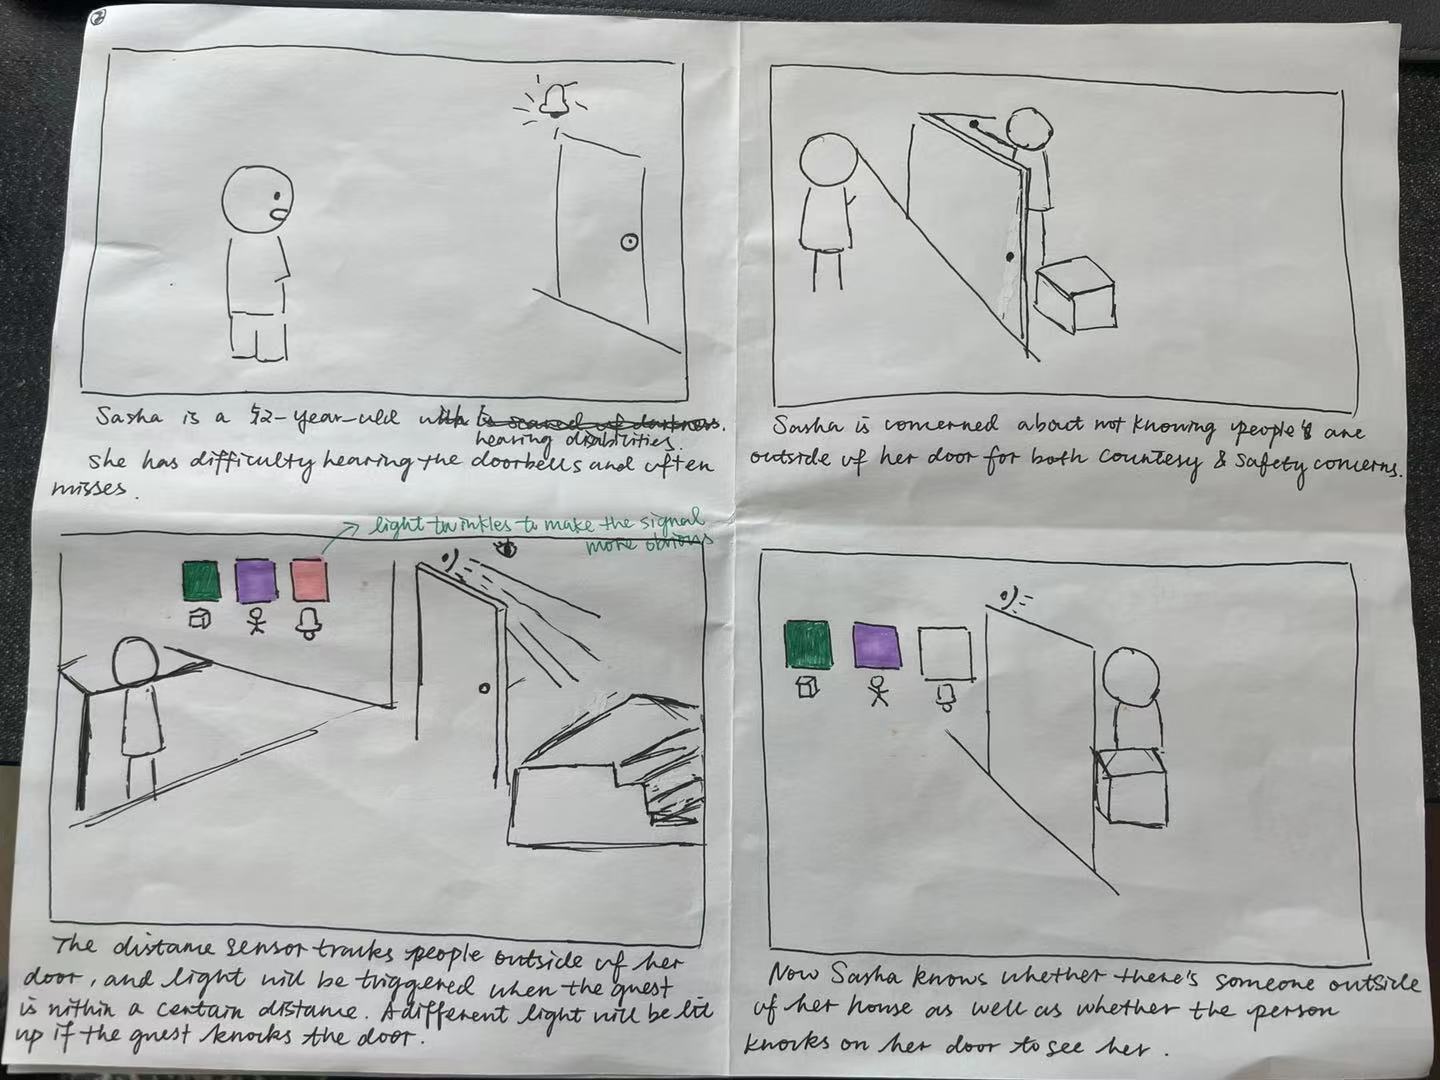 2
Sasha is a 52-year-old with is scared of darkness.
hearing disabilities.
She has difficulty hearing the doorbells and often
misses.
Sasha is concerned about not knowing people's are
outside of her door for both Countesy & Safety concerns.
light twinkles to make the signal
more obvious
The distance sensor tracks people outside of her
door, and light will be triggered when the guest
is within a certain distance. A different light will be lit
up if the guest knocks the door.
Now Sasha knows whether there's someone outside
of her house as well as whether the person
knocks on her door to see her.